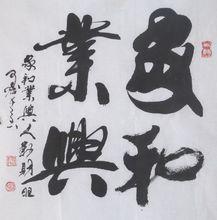 家和
業興
家和業興人勤財旺